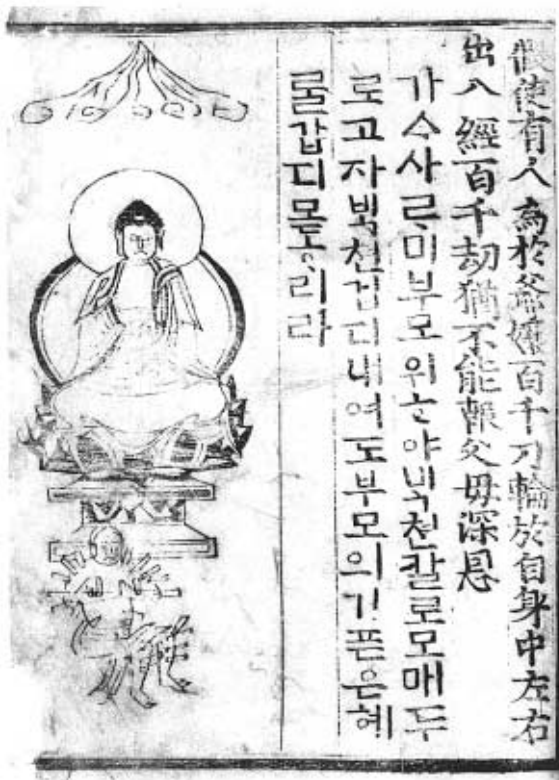 假使有人爲於爺孃百千刀輪於自身中左右
出入經百千劫猶不能報父母深恩
가ᄉᆞ사ᄅᆞ미부모위ᄒᆞ야ᄇᆡᆨ쳔칼로모매두
로고자ᄇᆡᆨ쳔겁디내여도부모의기픈은혜
룰갑디몯ᄒᆞ리라